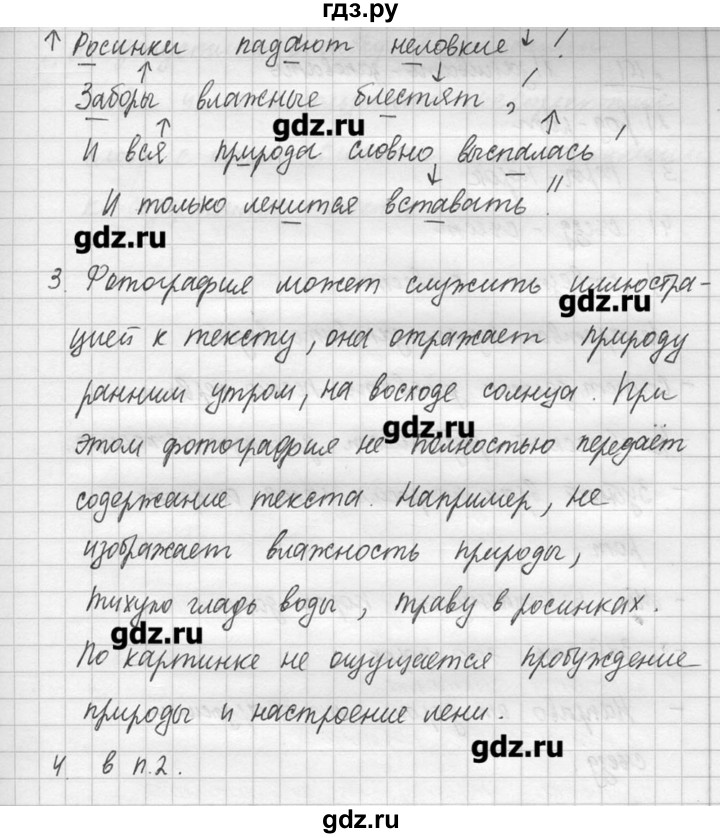 гдз.ру
↑ Росинки падают неловкие ↓ !
Заборы ↑ влажные блестят ↓, !
gdz.ru
И вся ↑ природа словно выспалась ↑ !
И только ленится вставать ↓ !!
gdz.ru
3. Фотография может служить иллюстра-
gdz.ru
цией к тексту, она отражает природу
ранним утром, на восходе солнца. При
gdz.ru
этом фотография не полностью передаёт
содержание текста. Например, не
изображает влажность природы,
тихую гладь воды, траву в росинках.
gdz.ru
По картинке не ощущается пробуждение
природы и настроение лени.
gdz.ru
4. в п.2.
gdz.ru